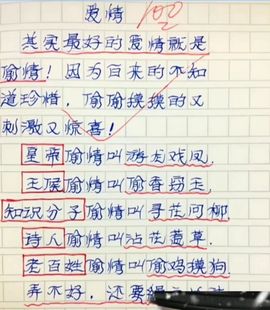 爱情
100
其实最好的爱情就是
偷情！因为白来的不知
道珍惜，偷偷摸摸的又
刺激又惊喜！
皇帝偷情叫游龙戏凤.
王侯偷情叫偷香窃玉
知识分子偷情叫寻花问柳.
诗人偷情叫沾花惹草.
老百姓偷情叫偷鸡摸狗.
弄不好，还要